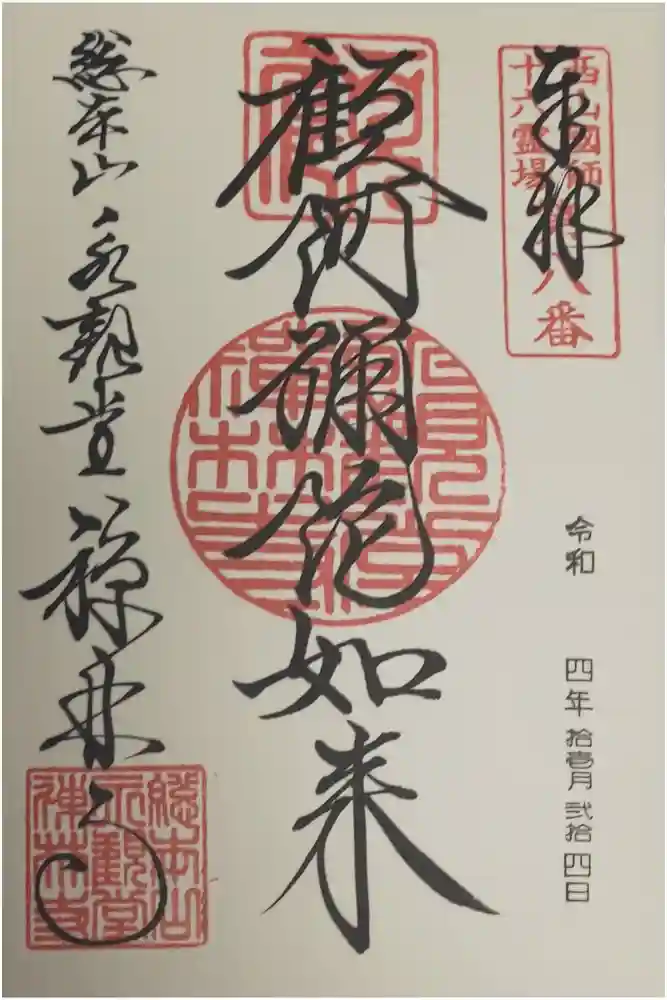 奉拝
西山國師
十六霊場
第八番
令和 四年 拾壱月 弐拾四日
顧阿彌陀如来
総本山永観堂 禅林寺
総本山
永観堂
禅林寺